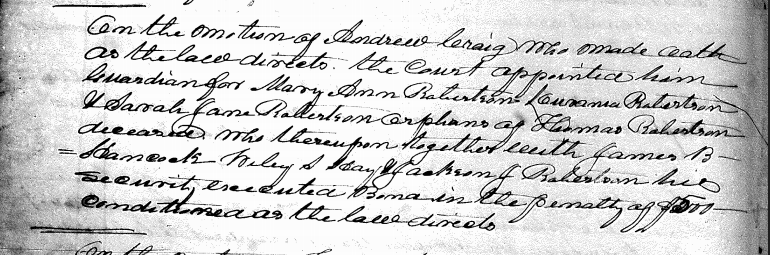 On the motion of Andrew Craig who made oath
as the law directs. the Court appointed him
Guardian for Mary Ann Robertson Lurania Robertson
& Sarah Jane Robertson orphans of Thomas Robertson
deceased, who thereupon together with James B-
=Hancock Wiley S Hay & Jackson J Robertson his
security executed Bond in the penalty of
conditioned as the law directs
On the